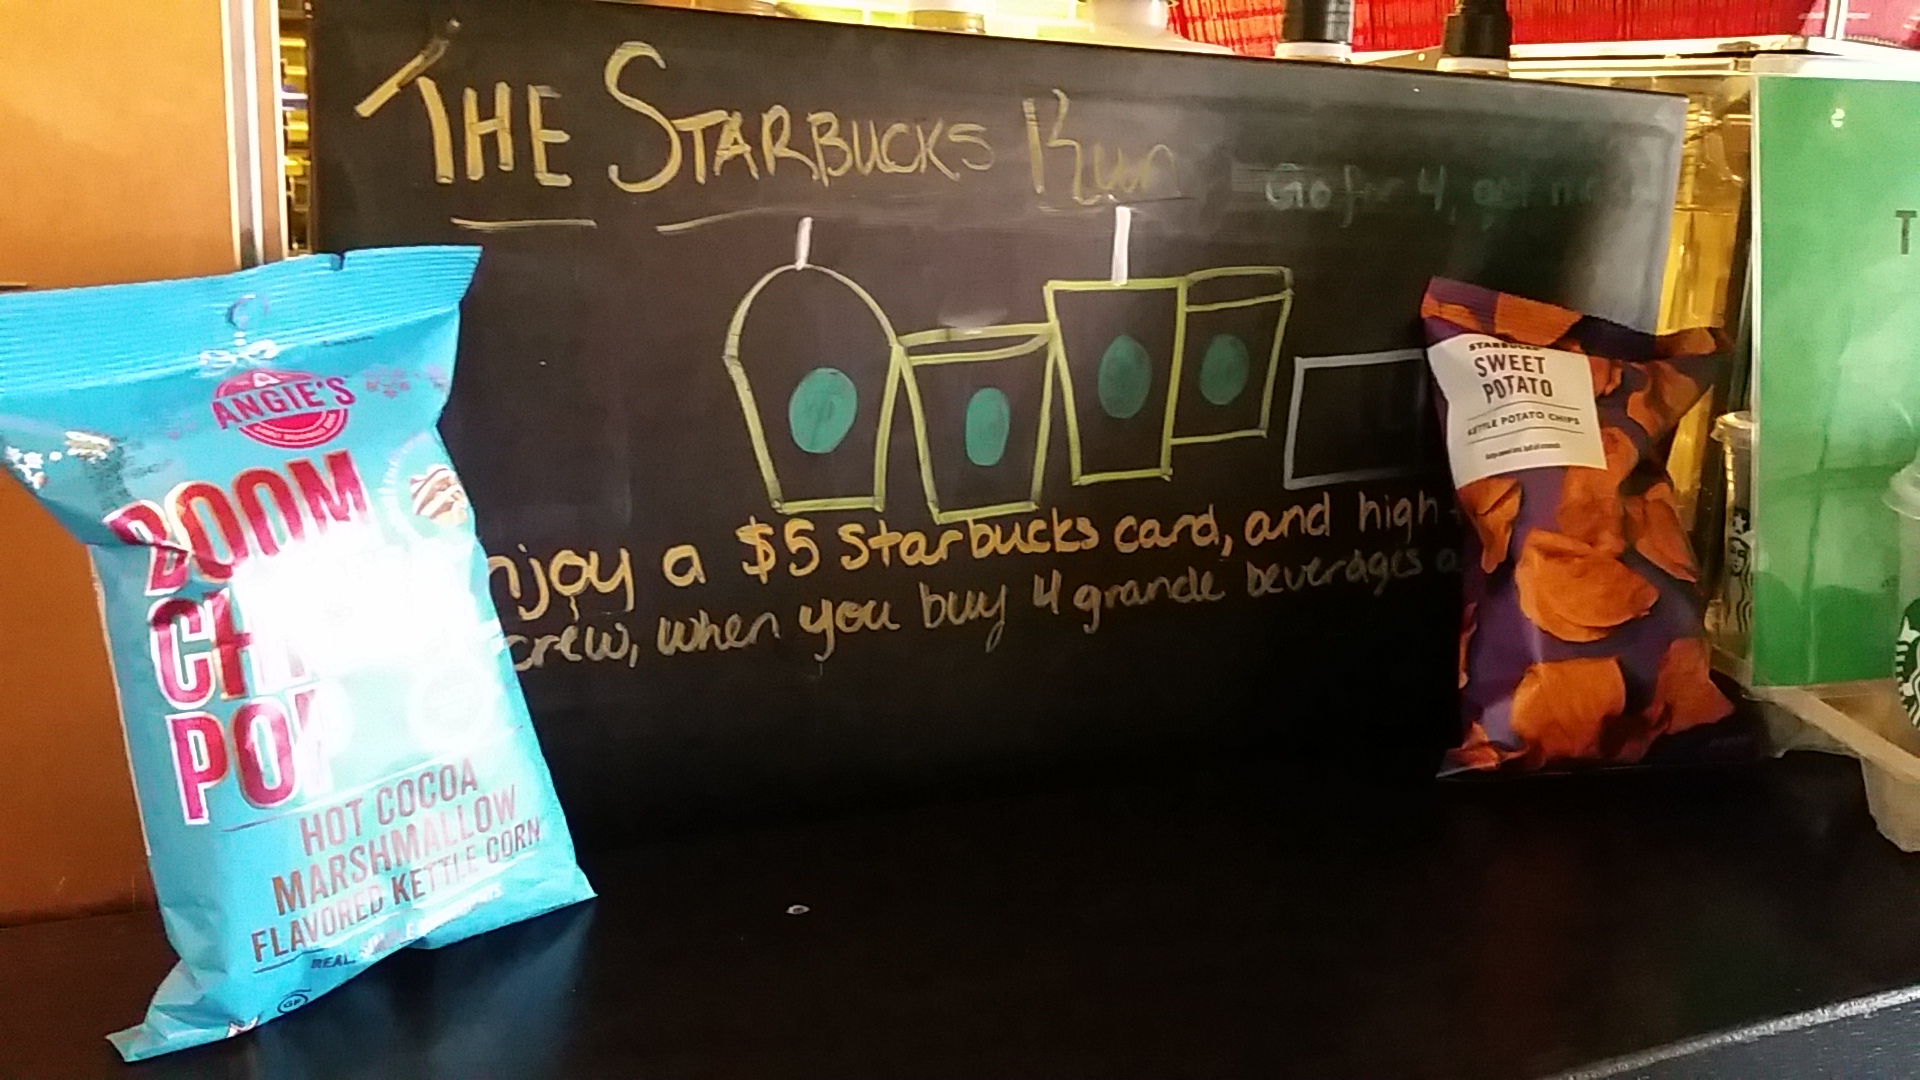 THE STARBUCKS Run
Go for 4, get
njoy a $5 Starbucks card, and high
crew, when you buy 4 grande beverages
ANGIE'S
BOOM
CH
PO
HOT COCOA
MARSHMALLOW
FLAVORED KETTLE CORN
REAL. SIMPLE
GF
STARBUCKS
SWEET
POTATO
KETTLE POTATO CHIPS
T